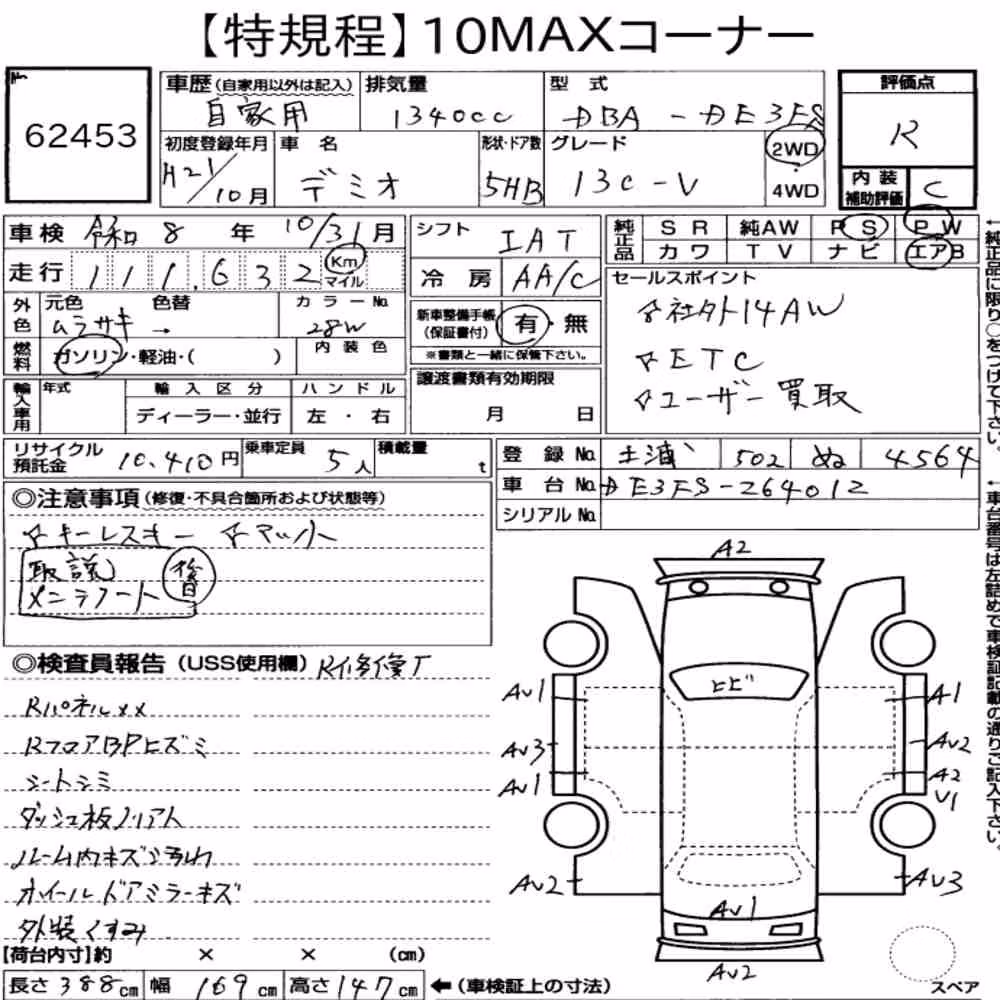 【特規程】10MAXコーナー
62453
車歴(自家用以外は記入) 排気量 型式 評価点
自家用 1340cc DBA-DE3FS R
初度登録年月 車名 形状・ドア数 グレード 2WD・4WD
H21/10月 デミオ 5HB 13c-V
内装補助評価 C
車検 令和8年10/31月
シフト IAT
純正品 SR 純AW PS PW
カワ TV ナビ エアB
走行 111,632 Km マイル
冷房 AA/C
セールスポイント
☆社外14AW
☆ETC
☆ユーザー買取
外色 元色 色替 カラーNo.
ムラサキ → 28W
新車整備手帳(保証書付) 有・無
※書類と一緒に保管下さい。
燃料 ガソリン・軽油・( ) 内装色
輸入車用 年式 輸入区分 ハンドル
ディーラー・並行 左・右
譲渡書類有効期限
月 日
リサイクル預託金 10,410円 乗車定員 5人 積載量 t
登録No. 土浦 502 ぬ 4564
車台No. DE3FS-264012
シリアルNo.
◎注意事項(修復・不具合箇所および状態等)
☆キーレスキー ☆マット
取説
メンテノート
後日
◎検査員報告(USS使用欄) R修復了
Rパネル××
RフロアBPヒズミ
シートシミ
ダッシュ板ノリアト
ルーム内キズ汚れ
ホイールドアミラーキズ
外装くすみ
A2
トビ
AV1
A1
AV3
AV2
AV1
A2
V1
AV2
AV3
AV1
AV2
スペア
【荷台内寸】約 × × (cm)
長さ388cm 幅169cm 高さ147cm ←(車検証上の寸法)
←純正品に限り○をつけて下さい。
←車台番号は左詰めで車検証記載の通りご記入下さい。